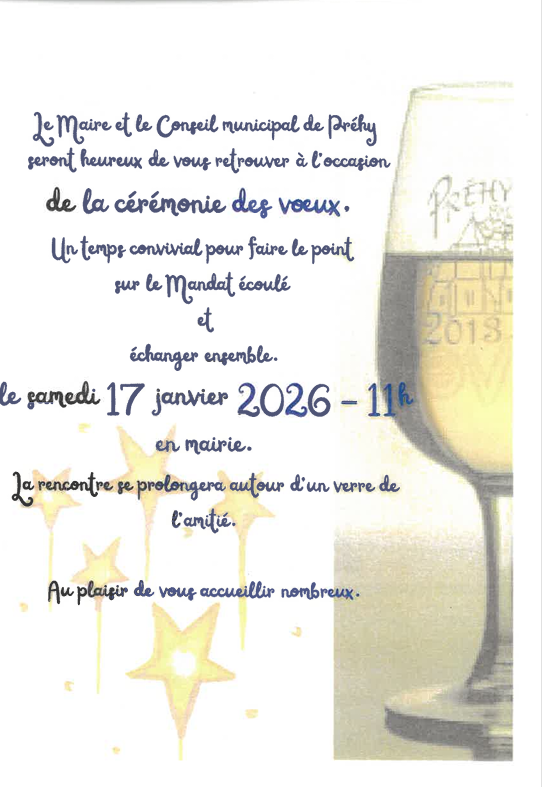 Le Maire et le Conseil municipal de Préhy
seront heureux de vous retrouver à l'occasion
de la cérémonie des vœux.
Un temps convivial pour faire le point
sur le Mandat écoulé
et
échanger ensemble.
le samedi 17 janvier 2026 - 11h
en mairie.
La rencontre se prolongera autour d'un verre de
l'amitié.
Au plaisir de vous accueillir nombreux.
PRÉHY
2013